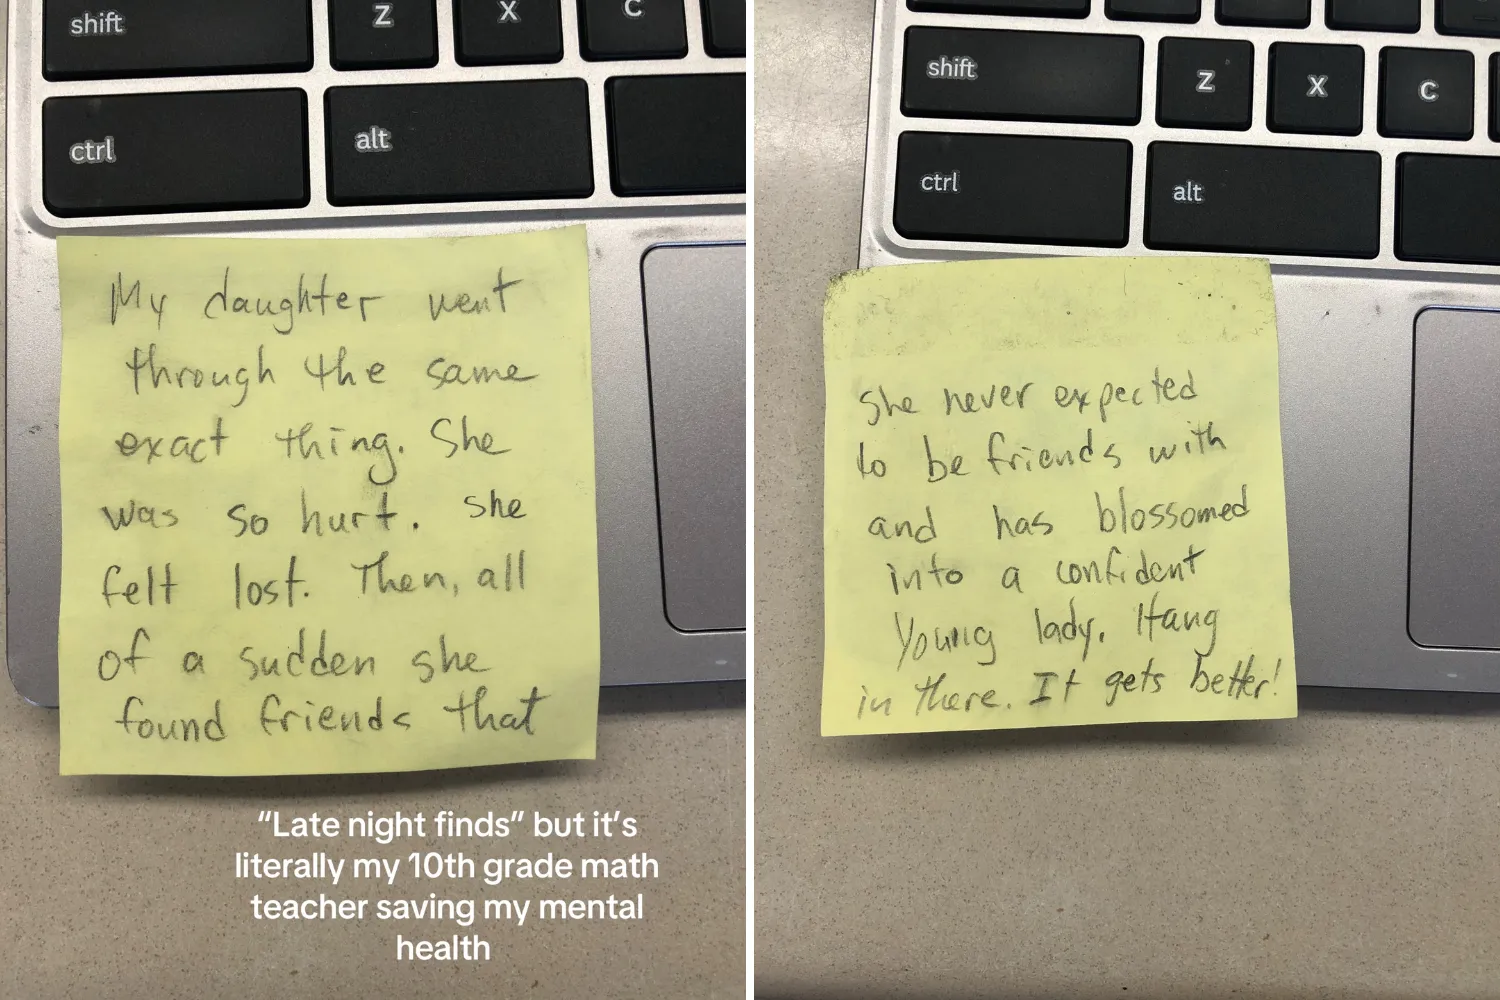 shift
Z
X
C
ctrl
alt
My daughter went
through the same
exact thing. She
was so hurt. She
felt lost. Then, all
of a sudden she
found friends that
“Late night finds” but it’s
literally my 10th grade math
teacher saving my mental
health
shift
Z
X
C
ctrl
alt
She never expected
to be friends with
and has blossomed
into a confident
Young lady. Hang
in there. It gets better!